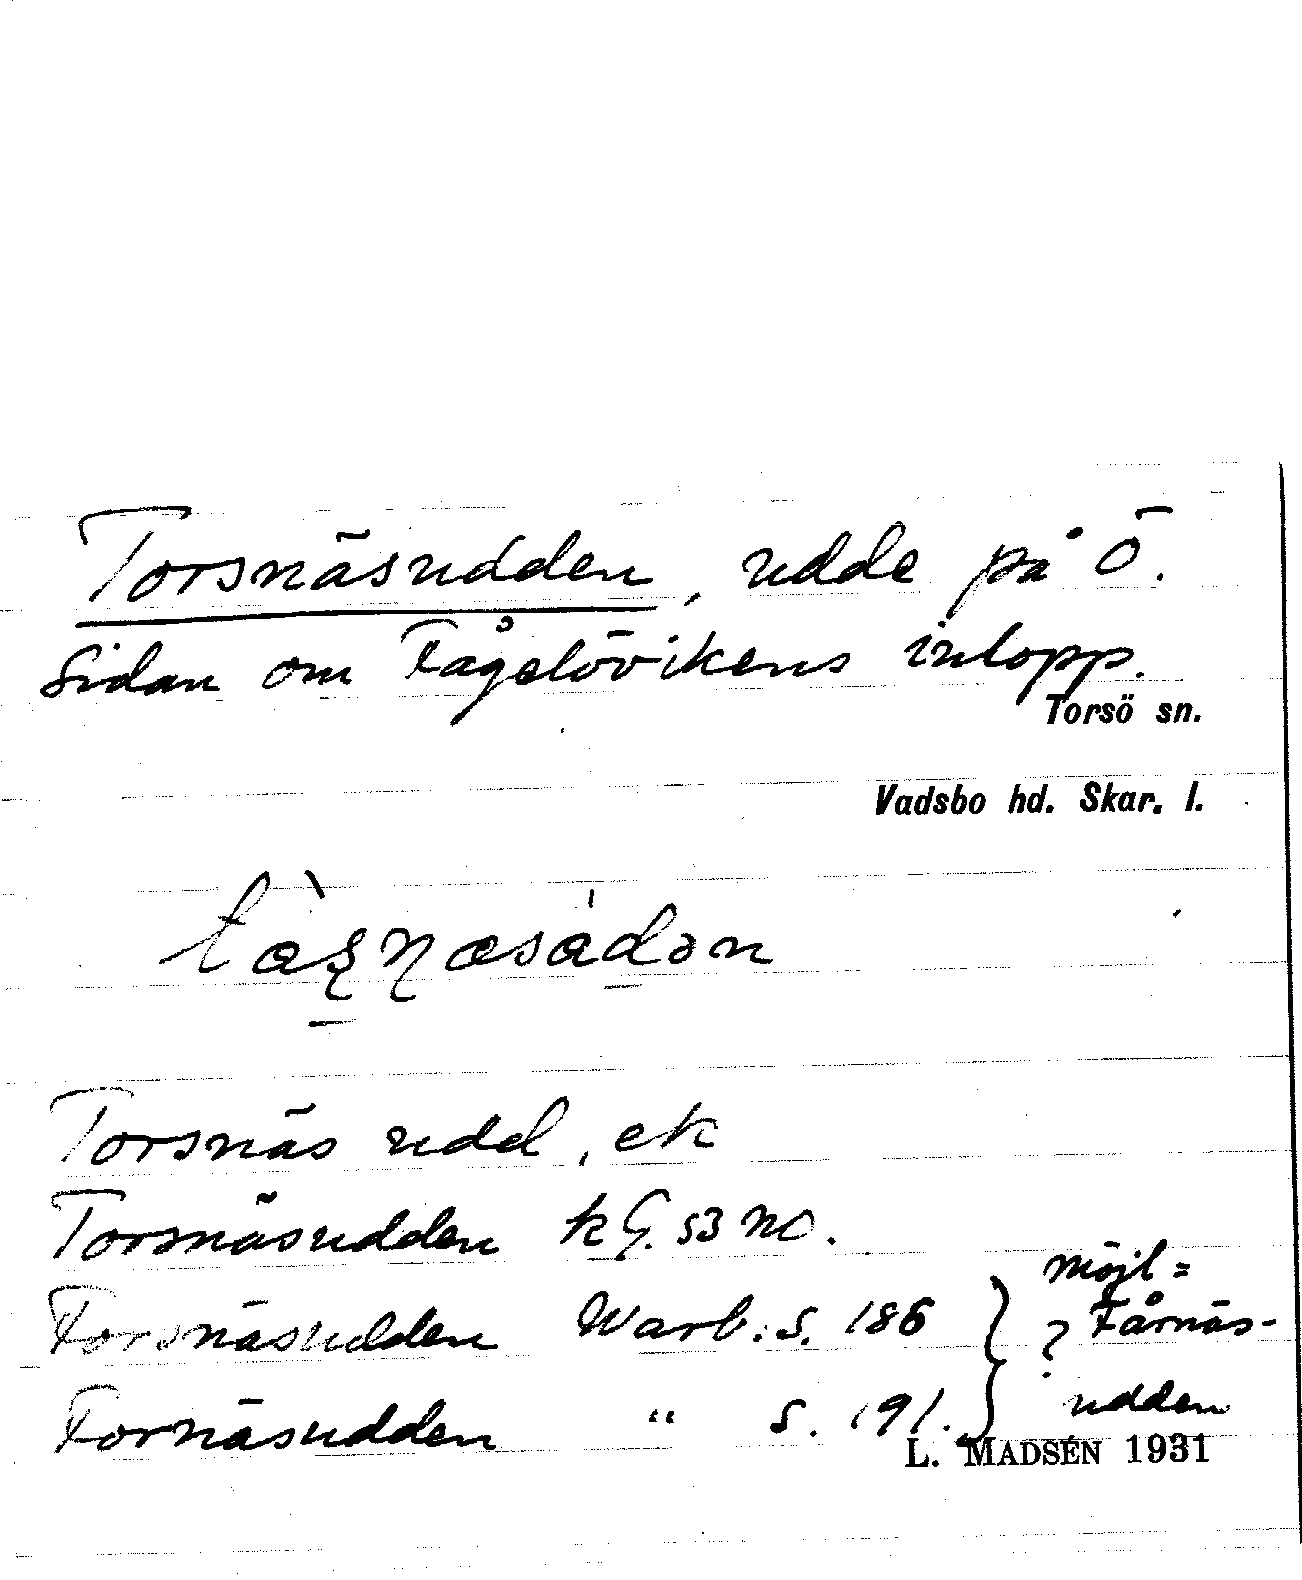 Torsnäsudden, udde på Ö.
Sidan om Fågelövikens inlopp.
Torsö sn.
Vadsbo hd. Skar. l.
Torsnäs udd, ek
Torsnäsudden k G. 53 NO.
Forsnäsudden Warb. S. 186 } möjl =
? Fårnäs-
Fornäsudden “ S. 191. udden
L. MADSÉN 1931